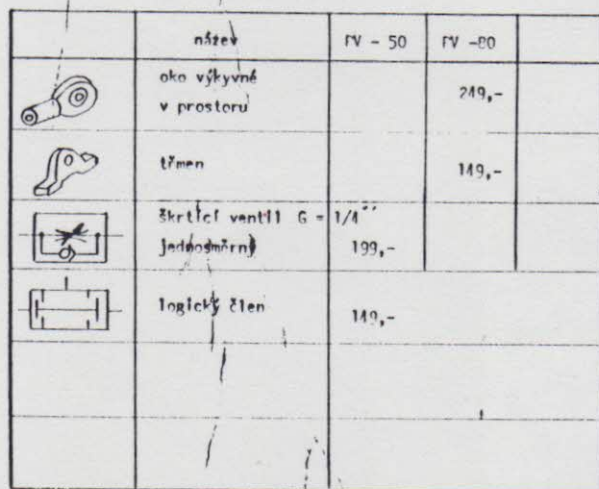 název PV - 50 PV -80
oko výkyvné
v prostoru 249,-
třmen 149,-
škrtící ventil G = 1/4´´
jednosměrný 199,-
logický člen 149,-